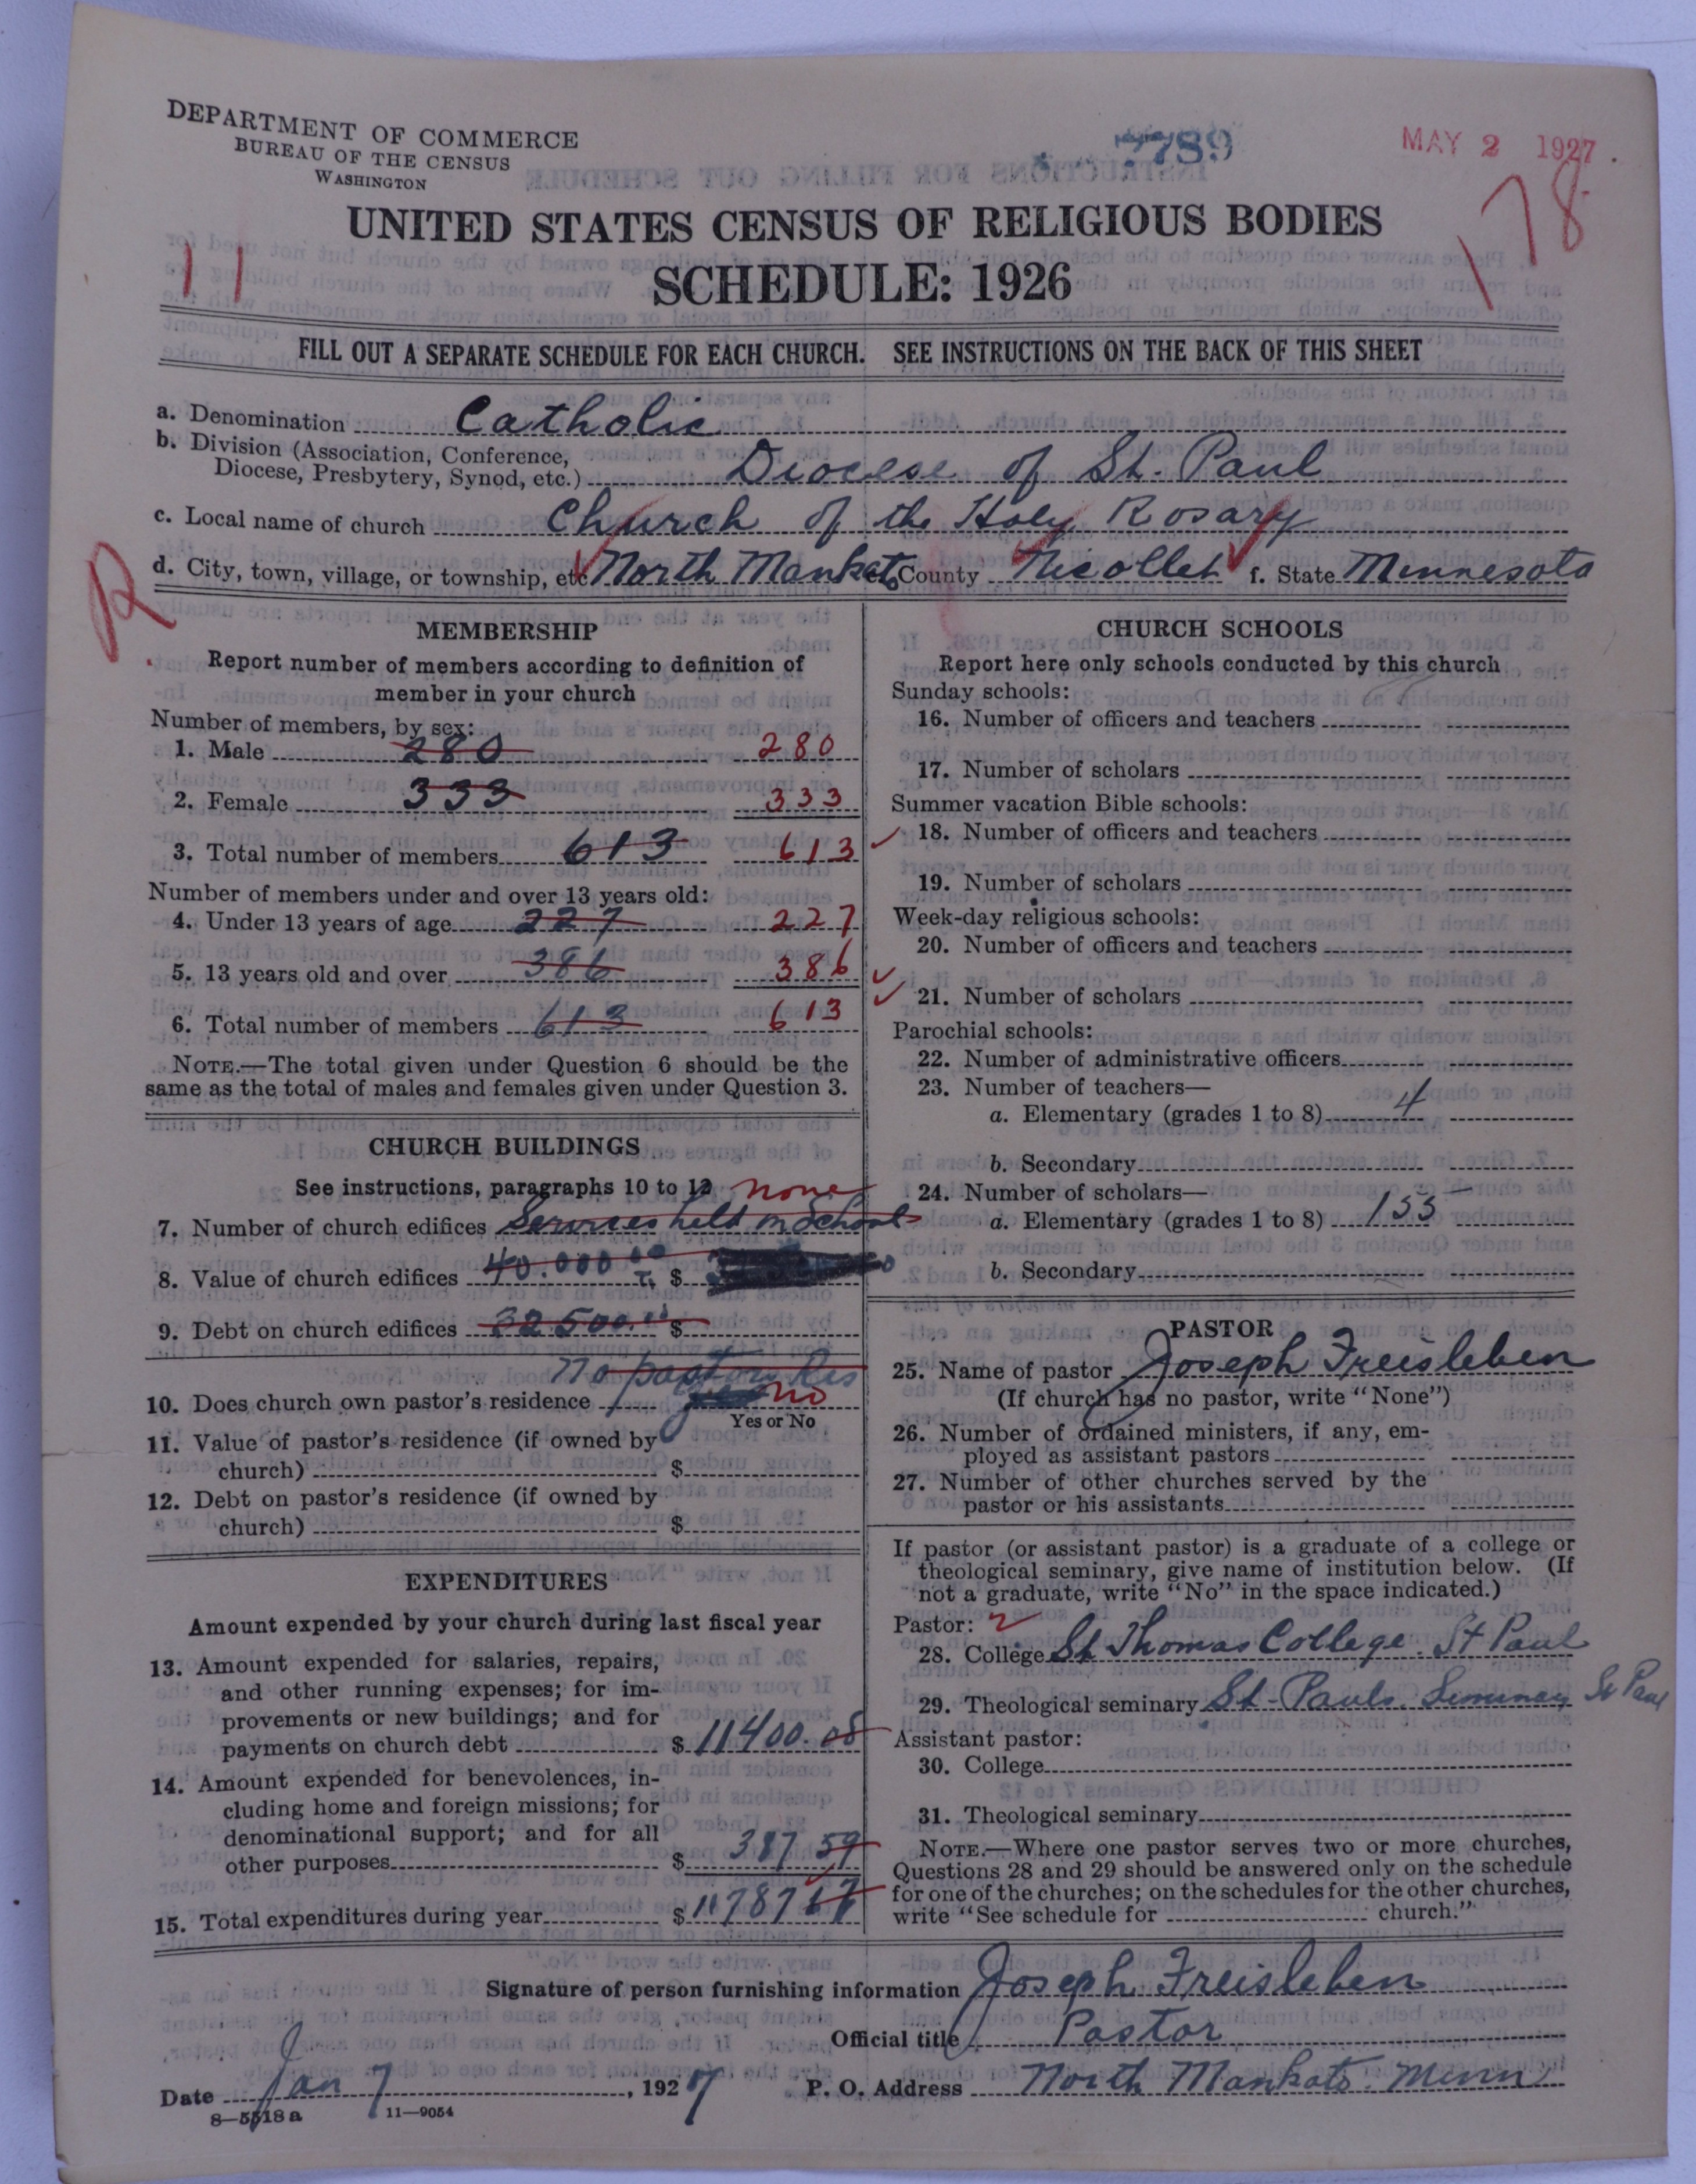 DEPARTMENT OF COMMERCE
BUREAU OF THE CENSUS
WASHINGTON
7789
MAY 2 1927
178
11
UNITED STATES CENSUS OF RELIGIOUS BODIES
SCHEDULE: 1926
FILL OUT A SEPARATE SCHEDULE FOR EACH CHURCH. SEE INSTRUCTIONS ON THE BACK OF THIS SHEET
a. Denomination Catholic
b. Division (Association, Conference,
Diocese, Presbytery, Synod, etc.) Diocese of St. Paul
c. Local name of church Church of the Holy Rosary
d. City, town, village, or township, etc North Mankato County Nicollet f. State Minnesota
R
MEMBERSHIP
Report number of members according to definition of
member in your church
Number of members, by sex:
1. Male 280 280
2. Female 333 333
3. Total number of members 613 613
Number of members under and over 13 years old:
4. Under 13 years of age 227 227
5. 13 years old and over 386 386
6. Total number of members 613 613
NOTE.—The total given under Question 6 should be the
same as the total of males and females given under Question 3.
CHURCH BUILDINGS
See instructions, paragraphs 10 to 12 none
7. Number of church edifices Services held in School
8. Value of church edifices 40.000.00 $
9. Debt on church edifices 32500.00 $
No pastors Res
10. Does church own pastor's residence no
Yes or No
11. Value of pastor's residence (if owned by
church) $
12. Debt on pastor's residence (if owned by
church) $
EXPENDITURES
Amount expended by your church during last fiscal year
13. Amount expended for salaries, repairs,
and other running expenses; for im-
provements or new buildings; and for
payments on church debt $ 11400.08
14. Amount expended for benevolences, in-
cluding home and foreign missions; for
denominational support; and for all
other purposes $ 387 59
15. Total expenditures during year $ 11787 67
CHURCH SCHOOLS
Report here only schools conducted by this church
Sunday schools:
16. Number of officers and teachers
17. Number of scholars
Summer vacation Bible schools:
18. Number of officers and teachers
19. Number of scholars
Week-day religious schools:
20. Number of officers and teachers
21. Number of scholars
Parochial schools:
22. Number of administrative officers
23. Number of teachers—
a. Elementary (grades 1 to 8) 4
b. Secondary
24. Number of scholars—
a. Elementary (grades 1 to 8) 155
b. Secondary
PASTOR
25. Name of pastor Joseph Freisleben
(If church has no pastor, write "None")
26. Number of ordained ministers, if any, em-
ployed as assistant pastors
27. Number of other churches served by the
pastor or his assistants
If pastor (or assistant pastor) is a graduate of a college or
theological seminary, give name of institution below. (If
not a graduate, write "No" in the space indicated.)
Pastor: 2
28. College St Thomas College. St Paul
29. Theological seminary St. Pauls Seminary St Paul
Assistant pastor:
30. College
31. Theological seminary
NOTE.—Where one pastor serves two or more churches,
Questions 28 and 29 should be answered only on the schedule
for one of the churches; on the schedules for the other churches,
write "See schedule for church."
Signature of person furnishing information Joseph Freisleben
Official title Pastor
Date Jan 7, 1927 P. O. Address North Mankato. Minn
8—5518a 11—9054